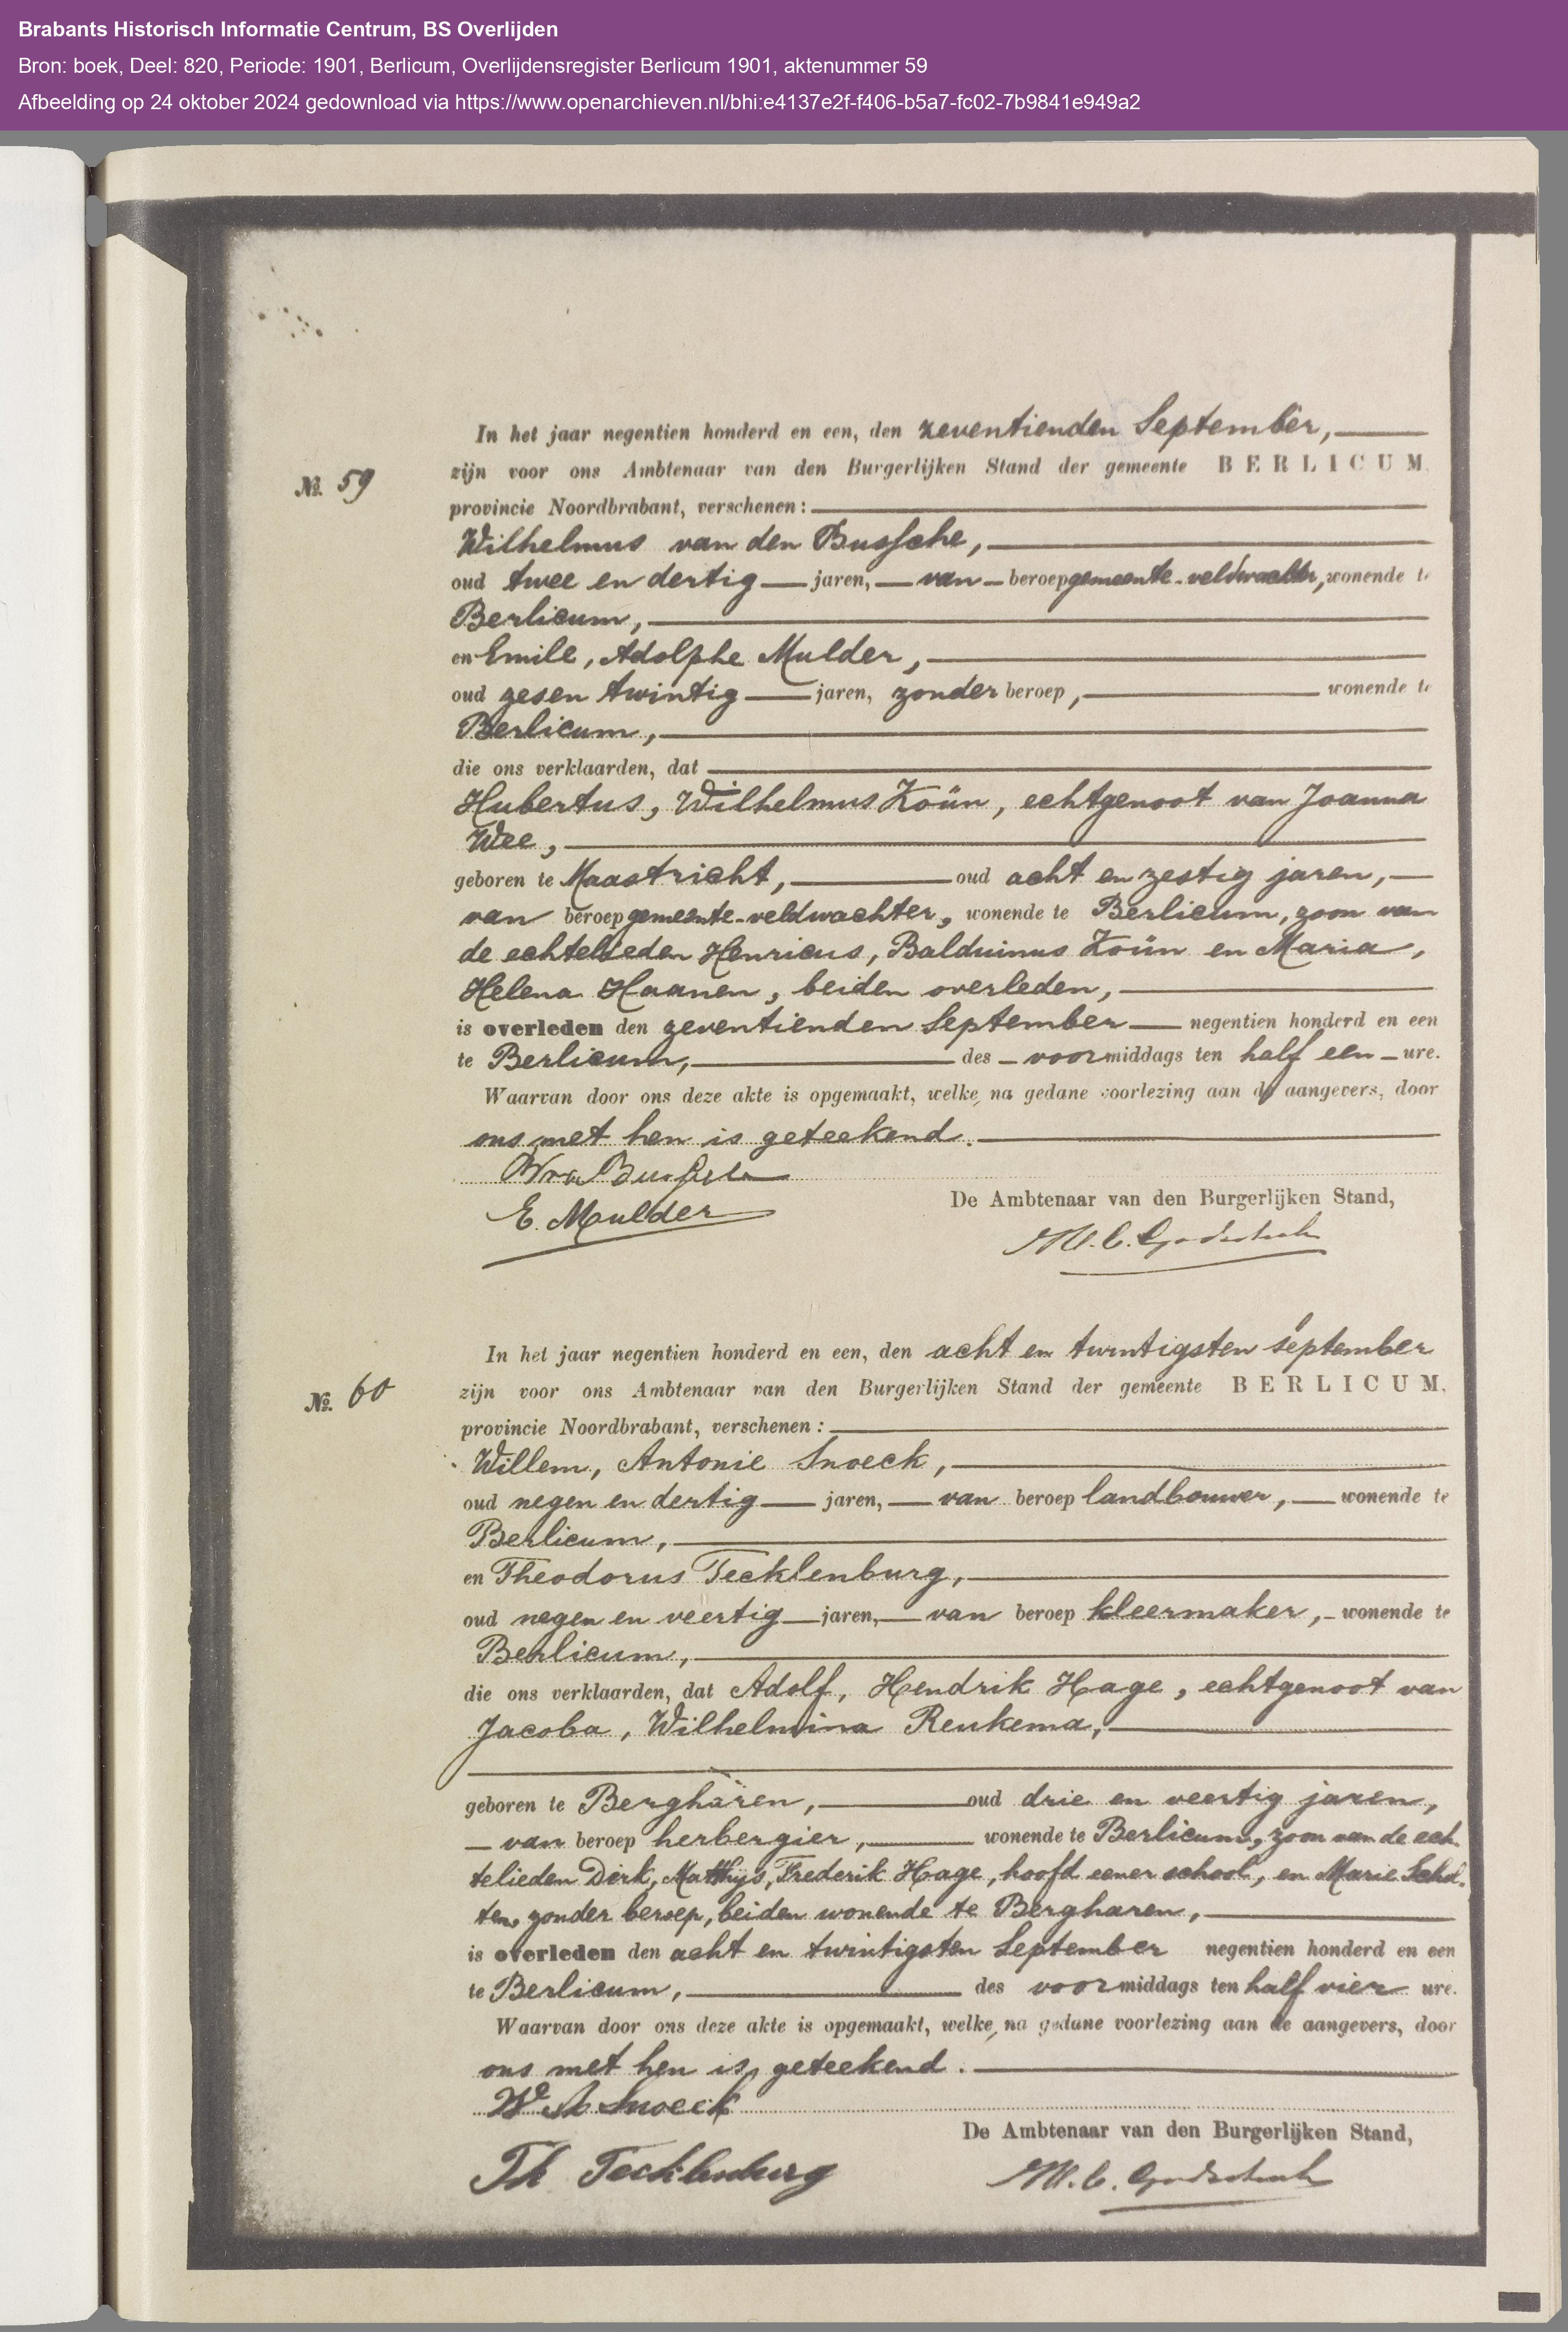 Brabants Historisch Informatie Centrum, BS Overlijden
Bron: boek, Deel: 820, Periode: 1901, Berlicum, Overlijdensregister Berlicum 1901, aktenummer 59
Afbeelding op 24 oktober 2024 gedownload via https://www.openarchieven.nl/bhi:e4137e2f-f406-b5a7-fc02-7b9841e949a2
In het jaar negentien honderd en een, den zeventienden September,
№. 59
zijn voor ons Ambtenaar van den Burgerlijken Stand der gemeente BERLICUM,
provincie Noordbrabant, verschenen:
Wilhelmus van den Bussche,
oud twee en dertig jaren, van beroep gemeente-veldwachter, wonende te
Berlicum,
en Emile, Adolphe Mulder,
oud zesen twintig jaren, zonder beroep, wonende te
Berlicum,
die ons verklaarden, dat
Hubertus, Wilhelmus Koün, echtgenoot van Joanna
Wee,
geboren te Maastricht, oud acht en zestig jaren,
van beroep gemeente-veldwachter, wonende te Berlicum, zoon van
de echtelieden Henricus, Balduinus Koün en Maria,
Helena Haanen, beiden overleden,
is overleden den zeventienden September negentien honderd en een
te Berlicum, des voormiddags ten half een ure.
Waarvan door ons deze akte is opgemaakt, welke, na gedane voorlezing aan de aangevers, door
ons met hen is geteekend.
E. Mulder
De Ambtenaar van den Burgerlijken Stand,
In het jaar negentien honderd en een, den acht en twintigsten september
№. 60
zijn voor ons Ambtenaar van den Burgerlijken Stand der gemeente BERLICUM,
provincie Noordbrabant, verschenen:
Willem, Antonie Snoeck,
oud negen en dertig jaren, van beroep landbouwer, wonende te
Berlicum,
en Theodorus Tecklenburg,
oud negen en veertig jaren, van beroep kleermaker, wonende te
Berlicum,
die ons verklaarden, dat Adolf, Hendrik Hage, echtgenoot van
Jacoba, Wilhelmina Reukema,
geboren te Bergharen, oud drie en veertig jaren,
van beroep herbergier, wonende te Berlicum, zoon van de ech-
telieden Dirk, Matthijs, Frederik Hage, hoofd eener school, en Marie Schol-
ten, zonder beroep, beiden wonende te Bergharen,
is overleden den acht en twintigsten September negentien honderd en een
te Berlicum, des voormiddags ten half vier ure.
Waarvan door ons deze akte is opgemaakt, welke, na gedane voorlezing aan de aangevers, door
ons met hen is geteekend.
W A Snoeck
De Ambtenaar van den Burgerlijken Stand,
Th Tecklenburg